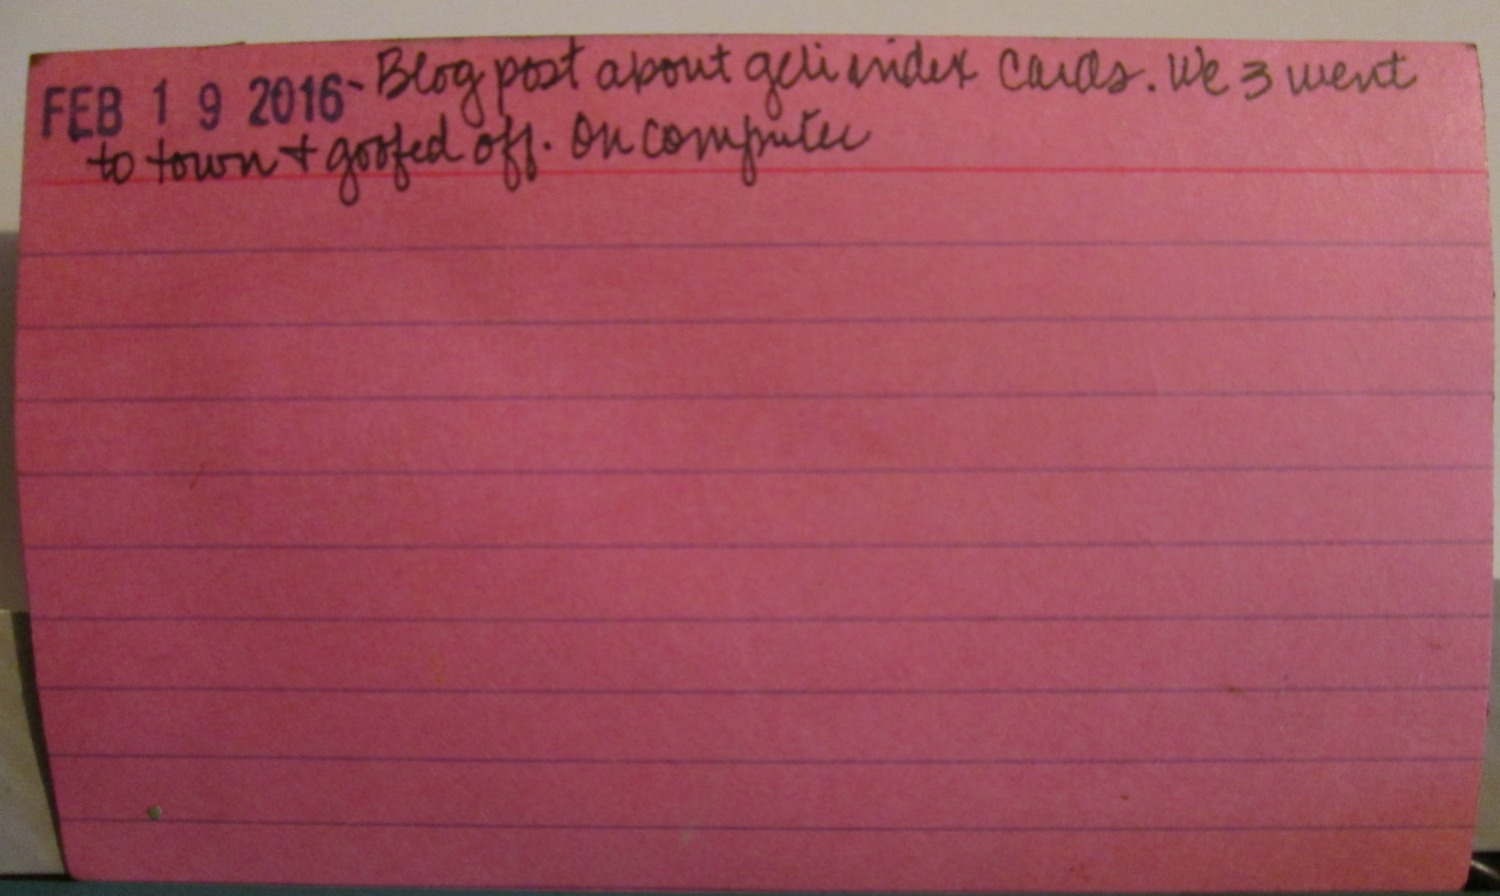 FEB 19 2016- Blog post about geli index cards. We 3 went
to town + goofed off. On computer